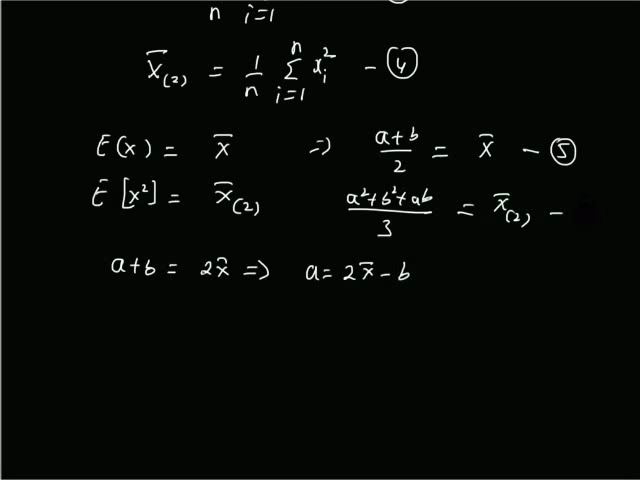 n i=1
x̄₍₂₎ = 1/n Σⁿᵢ₌₁ xᵢ² – ④
E(x) = x̄ ⇒ (a+b)/2 = x̄ – ⑤
E[x²] = x̄₍₂₎ (a²+b²+ab)/3 = x̄₍₂₎ –
a+b = 2x̄ ⇒ a = 2x̄ – b